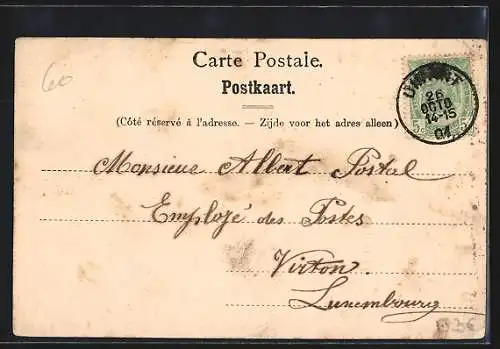 60
Carte Postale.
Postkaart.
(Côté réservé à l'adresse. — Zijde voor het adres alleen)
26
OCTO
14-15
04
5c
Monsieur Albert Postal
Employé des Postes
Virton
Luxembourg